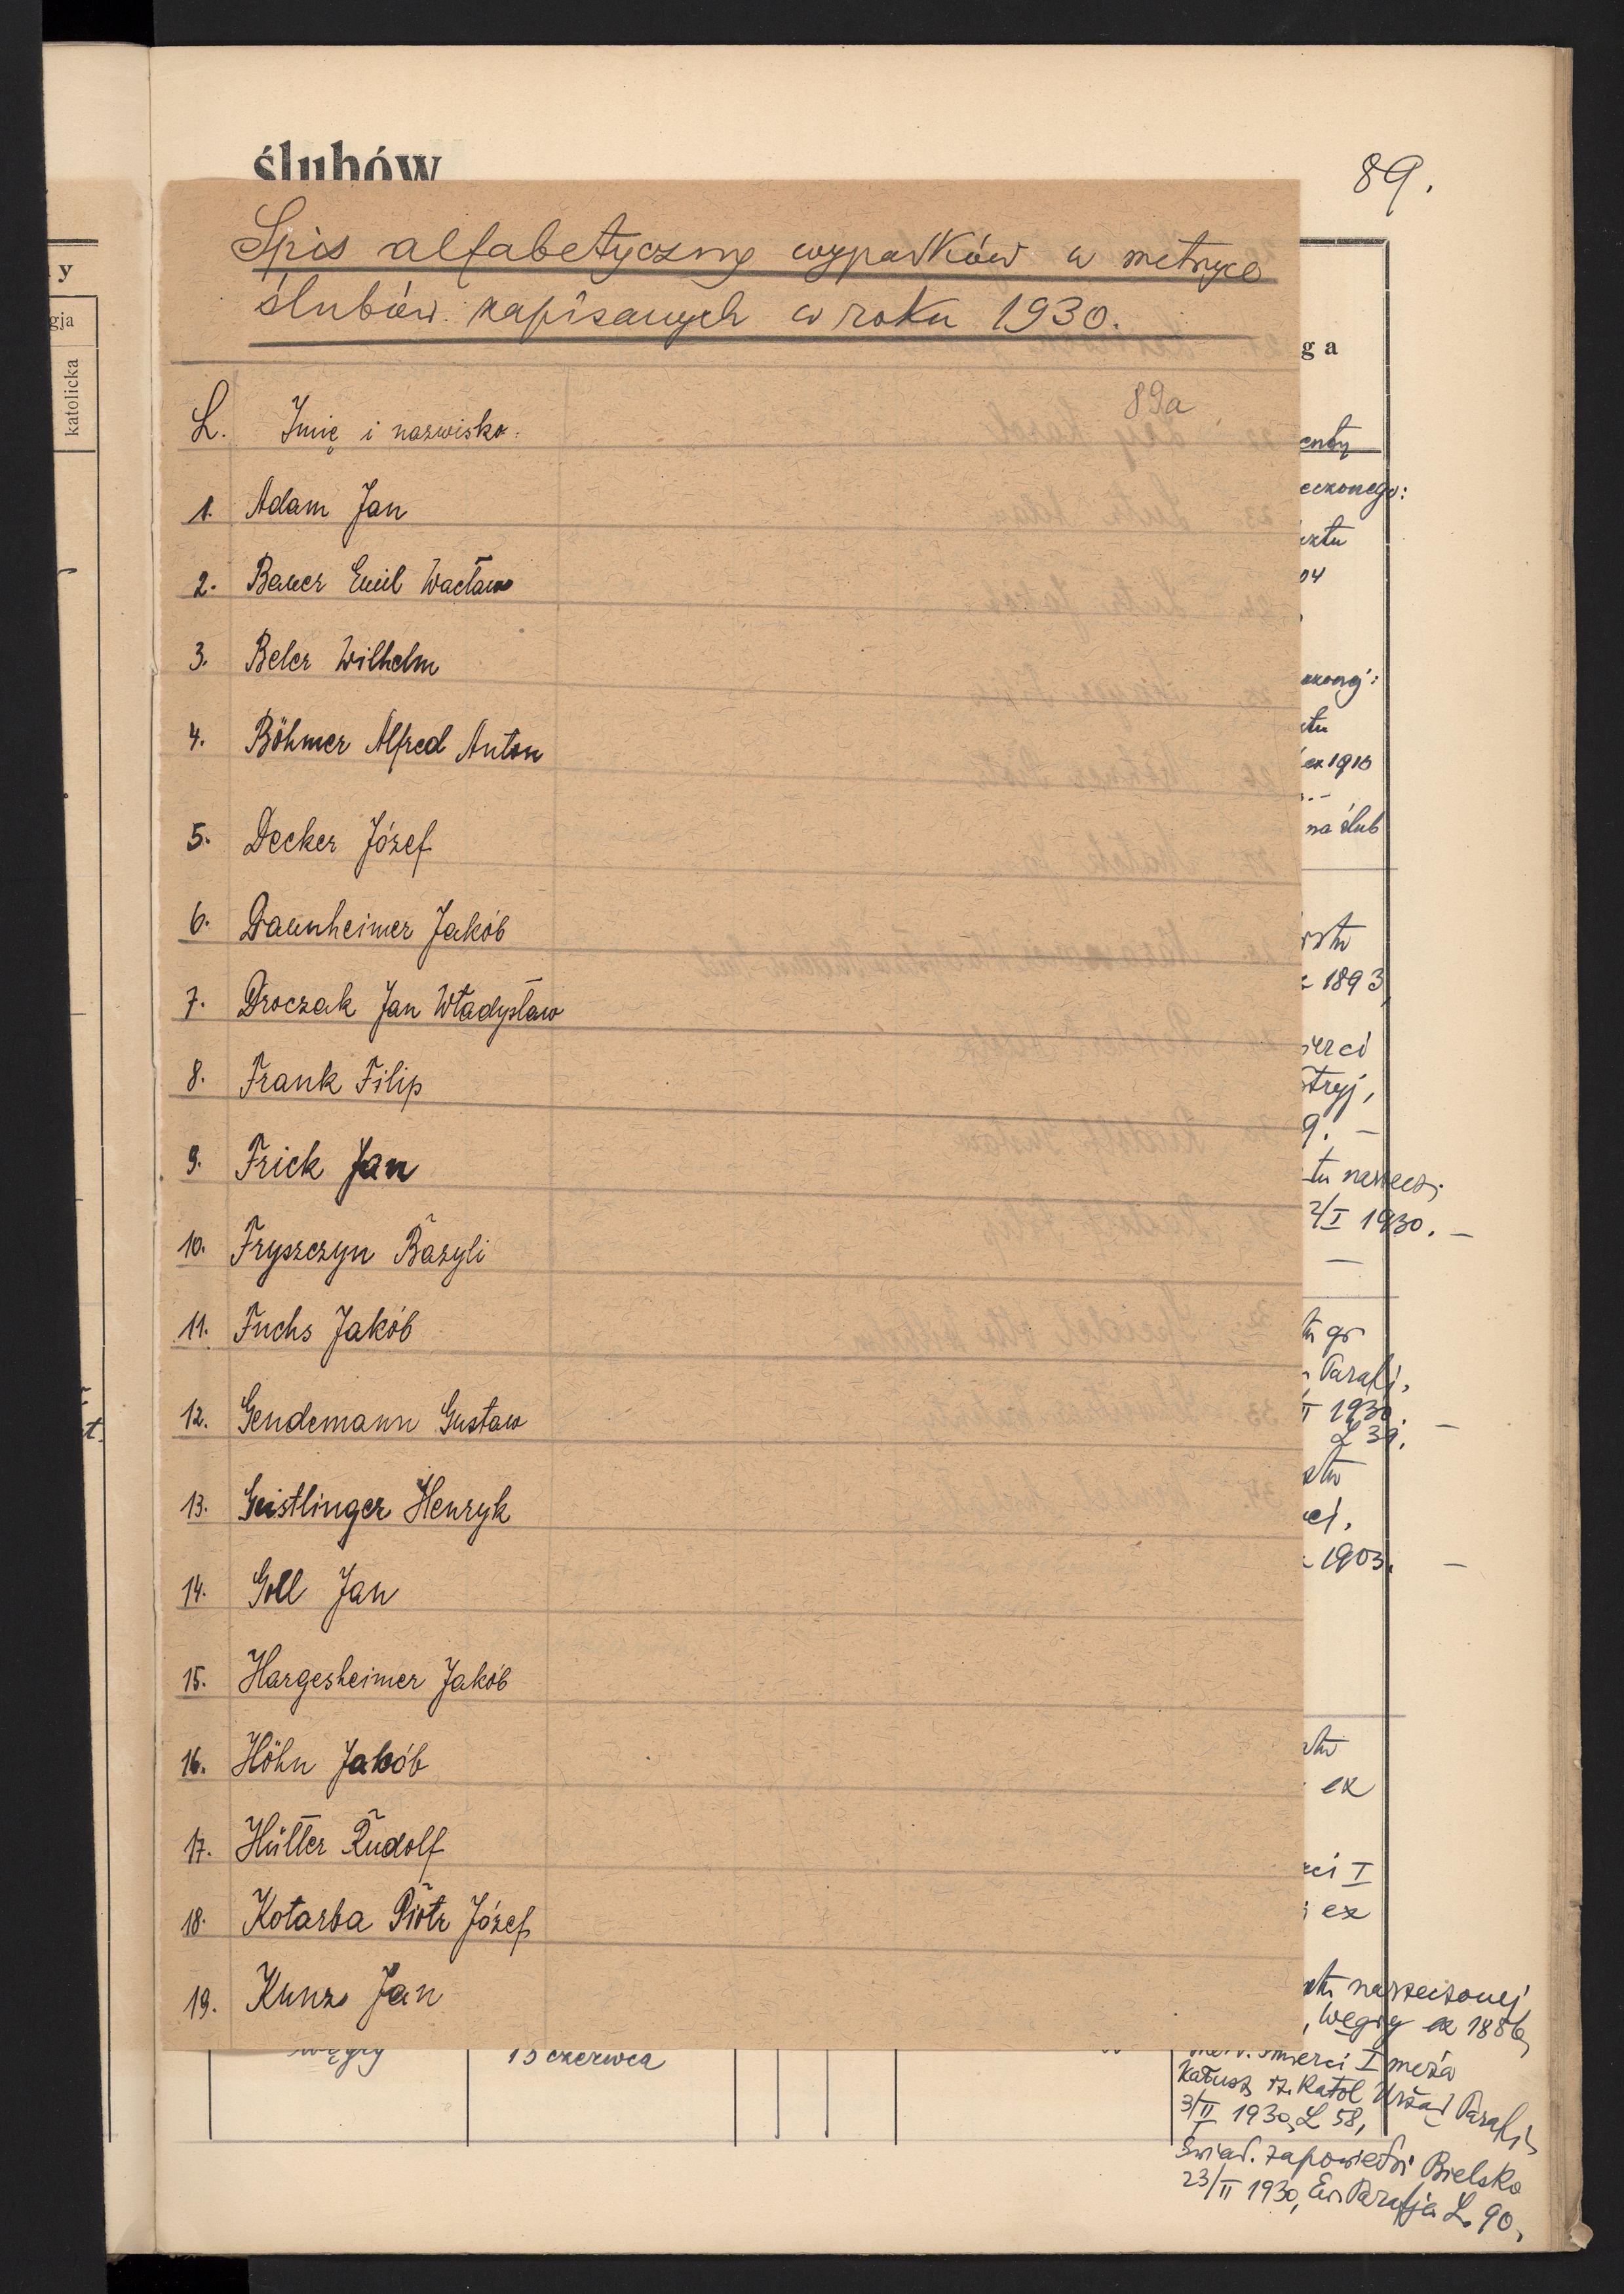 ślubów
89.
Spis alfabetyczny wypadków w metryce
ślubów zapisanych w roku 1930.
89a
L. Imię i nazwisko.
1. Adam Jan
2. Bauer Emil Wacław
3. Beler Wilhelm
4. Böhmer Alfred Anton
5. Decker Józef
6. Daunheimer Jakób
7. Droczak Jan Władysław
8. Frank Filip
9. Frick Jan
10. Fryszczyn Bazyli
11. Fuchs Jakób
12. Gendemann Gustaw
13. Geistlinger Henryk
14. Goll Jan
15. Hargesheimer Jakób
16. Höhn Jakób
17. Hütter Rudolf
18. Kotarba Piotr Józef
19. Kunz Jan
y
gja
katolicka
ga
eczonego:
04
ex 1910
na ślub
1893,
Stryj,
2/I 1930. –
gr
Parafj.
II 1930. –
L 39.
1903. –
ex
I
ex
narzeczonej,
, Węgry ex 1886,
Węgry 15 czerwca
śmierci I męża
Kałusz rz. Katol Urząd Parafj.,
3/II 1930, L 58,
Świad. zapowiedzi Bielsko
23/II 1930, Ew. Parafja L. 90,